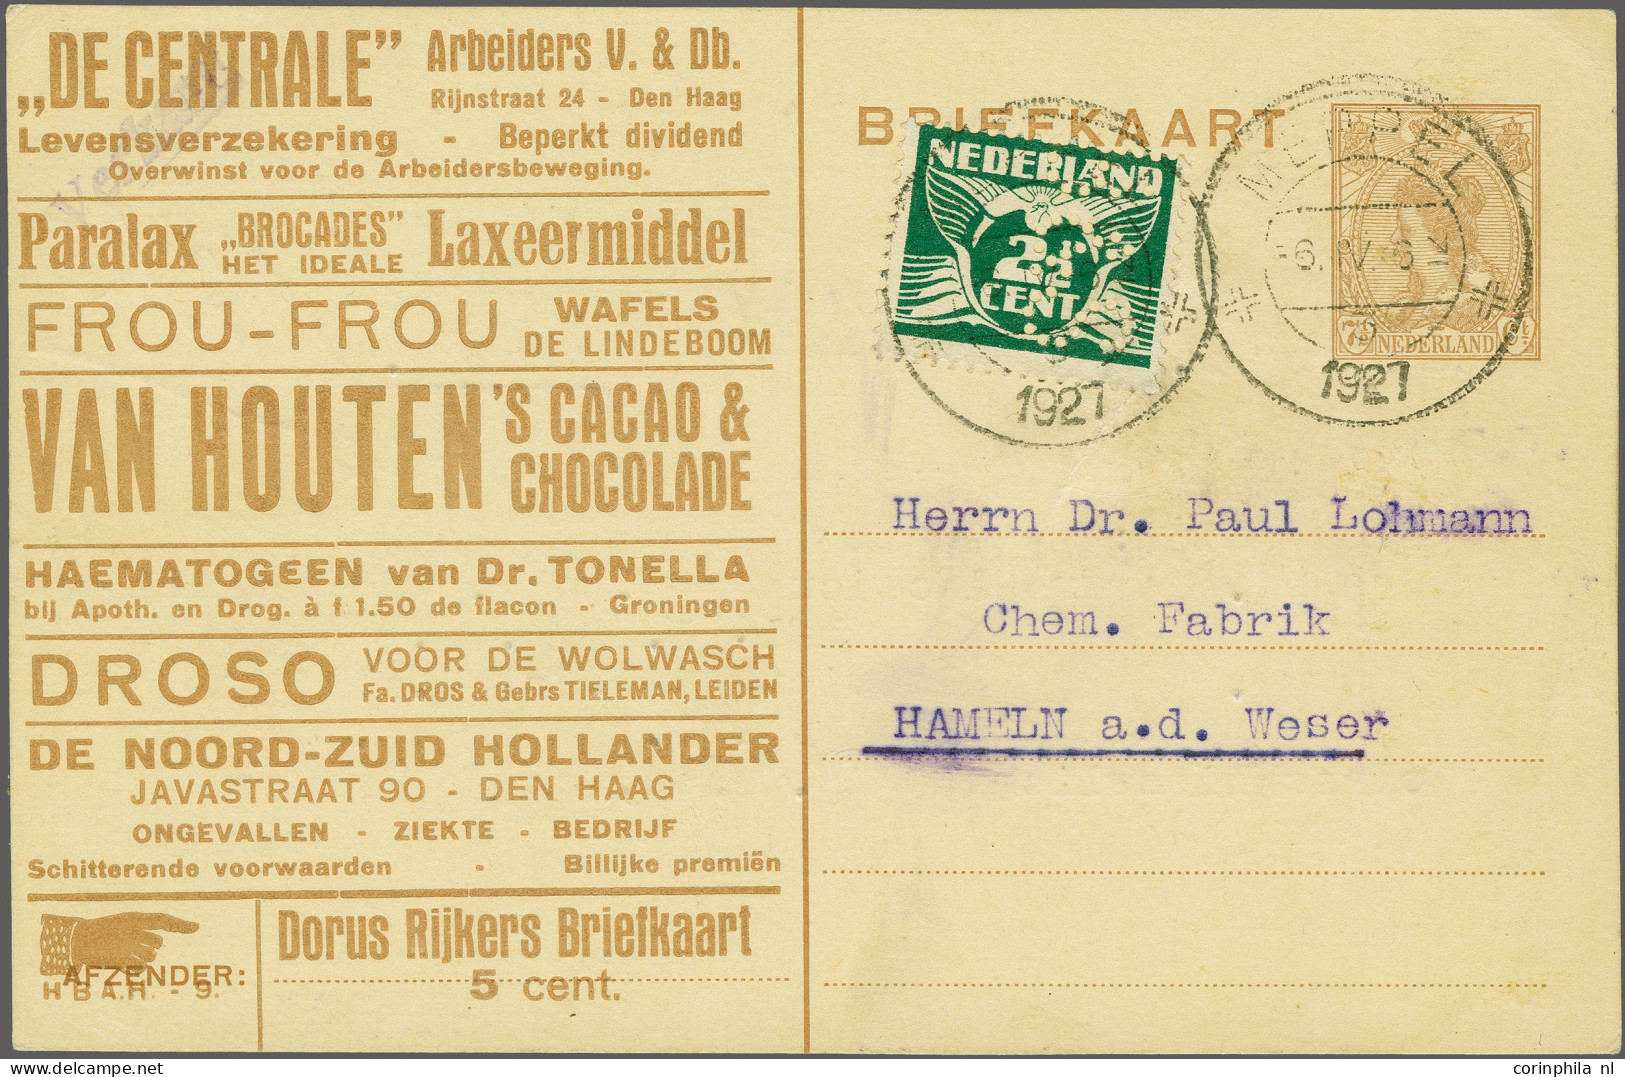 „DE CENTRALE”
Arbeiders V. & Db.
Rijnstraat 24 - Den Haag
Levensverzekering - Beperkt dividend
Overwinst voor de Arbeidersbeweging.
Paralax „BROCADES” HET IDEALE Laxeermiddel
FROU-FROU WAFELS
DE LINDEBOOM
VAN HOUTEN'S CACAO &
CHOCOLADE
HAEMATOGEEN van Dr. TONELLA
bij Apoth. en Drog. à f 1.50 de flacon - Groningen
DROSO VOOR DE WOLWASCH
Fa. DROS & Gebrs TIELEMAN, LEIDEN
DE NOORD-ZUID HOLLANDER
JAVASTRAAT 90 - DEN HAAG
ONGEVALLEN - ZIEKTE - BEDRIJF
Schitterende voorwaarden - Billijke premiën
AFZENDER:
H B A.H. - 9.
Dorus Rijkers Briefkaart
5 cent.
BRIEFKAART
NEDERLAND
2½
CENT
1927
MEPPEL
1927
7½ NEDERLAND Ct
Herrn Dr. Paul Lohmann
Chem. Fabrik
HAMELN a.d. Weser
corinphila nl